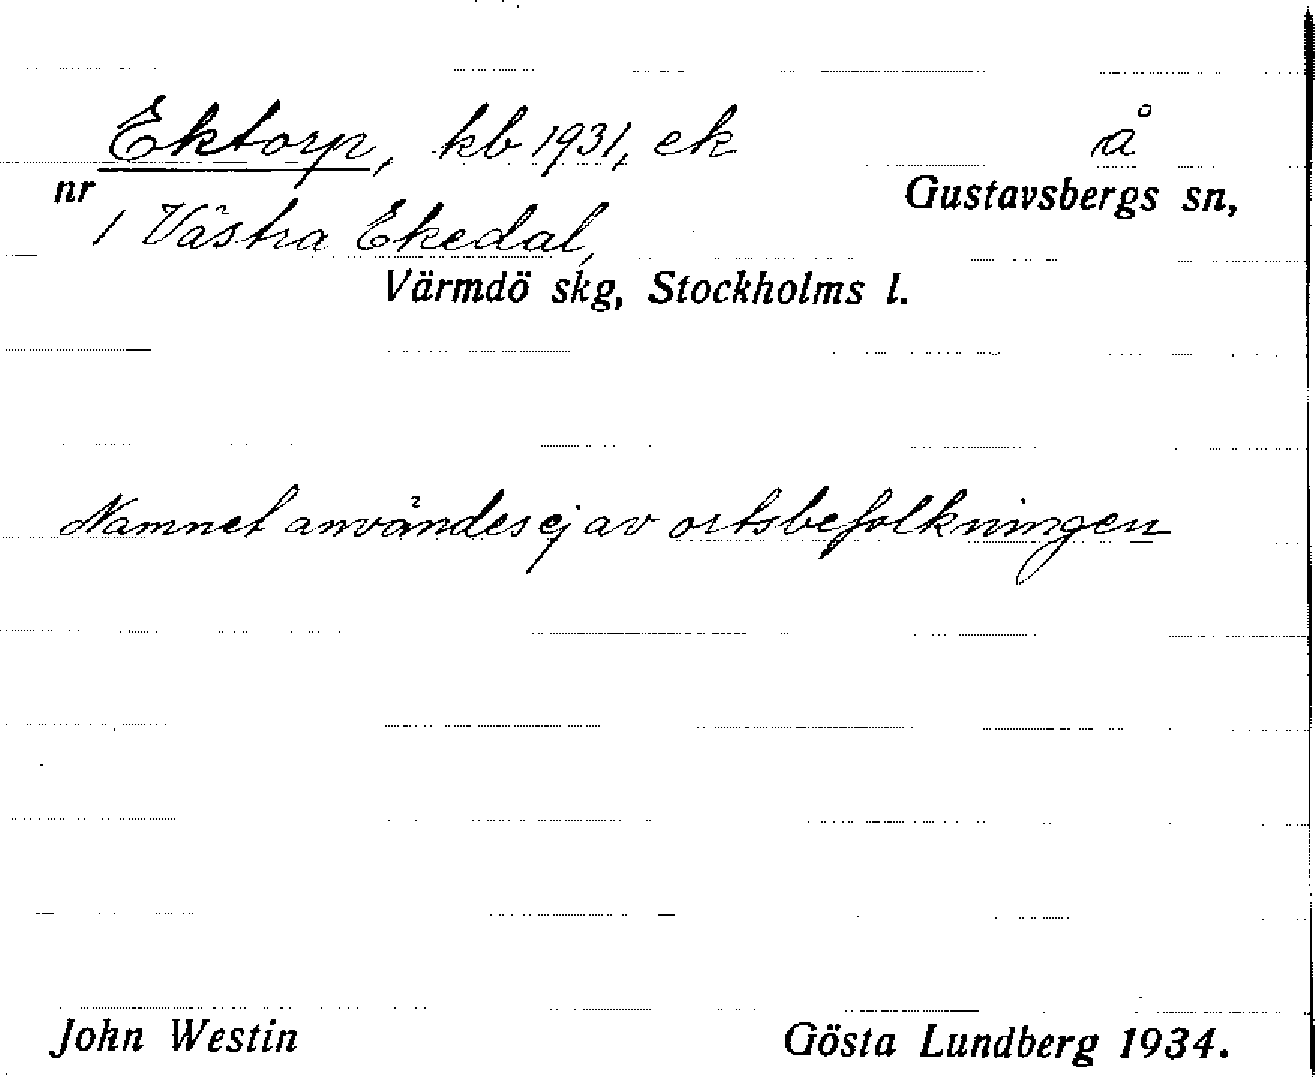 Ektorp, kb 1931, ek å
nr Gustavsbergs sn,
1 Västra Ekedal,
Värmdö skg, Stockholms l.
Namnet användes ej av ortsbefolkningen
John Westin Gösta Lundberg 1934.